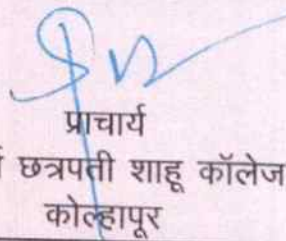 प्राचार्य
छत्रपती शाहू कॉलेज
कोल्हापूर